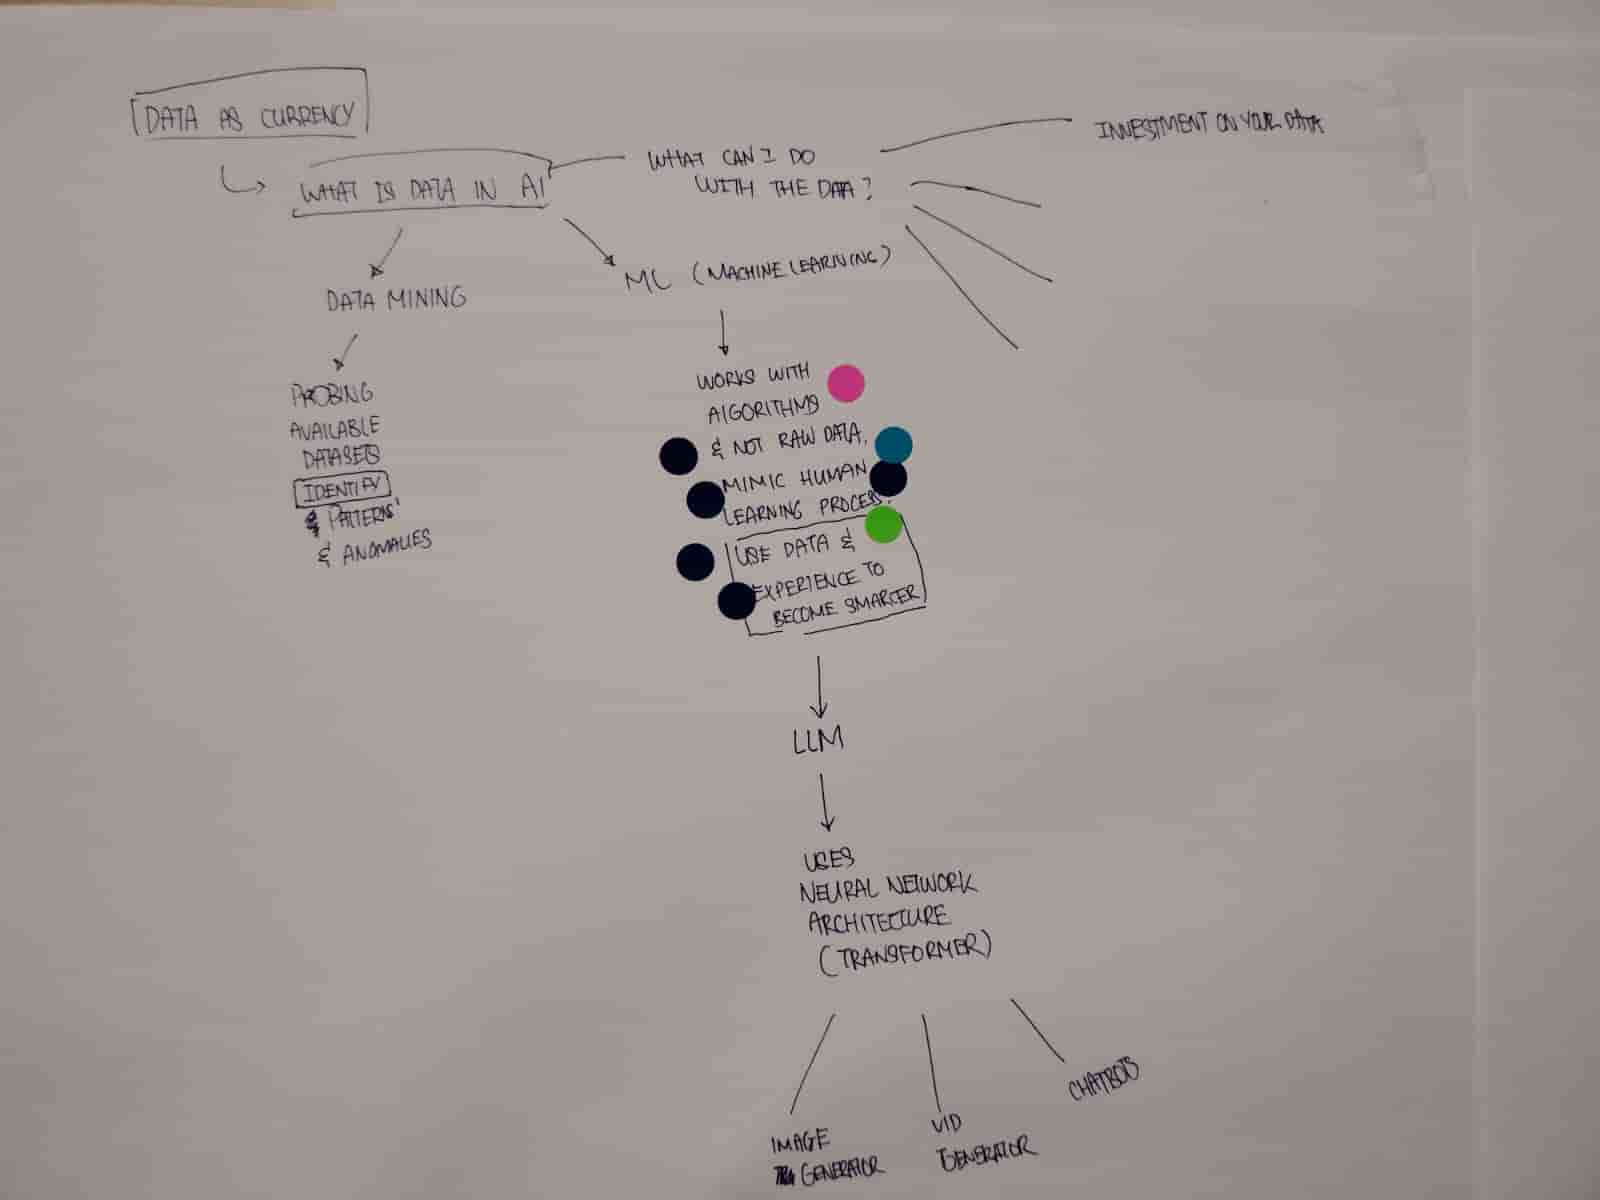 DATA AS CURRENCY
WHAT IS DATA IN AI
WHAT CAN I DO
WITH THE DATA?
INVESTMENT ON YOUR DATA
DATA MINING
PROBING
AVAILABLE
DATASETS
IDENTIFY
& PATTERNS
& ANOMALIES
ML (MACHINE LEARNING)
WORKS WITH
ALGORITHMS
& NOT RAW DATA.
MIMIC HUMAN
LEARNING PROCESS.
USE DATA &
EXPERIENCE TO
BECOME SMARTER
LLM
USES
NEURAL NETWORK
ARCHITECTURE
(TRANSFORMER)
IMAGE
GENERATOR
VID
GENERATOR
CHATBOTS